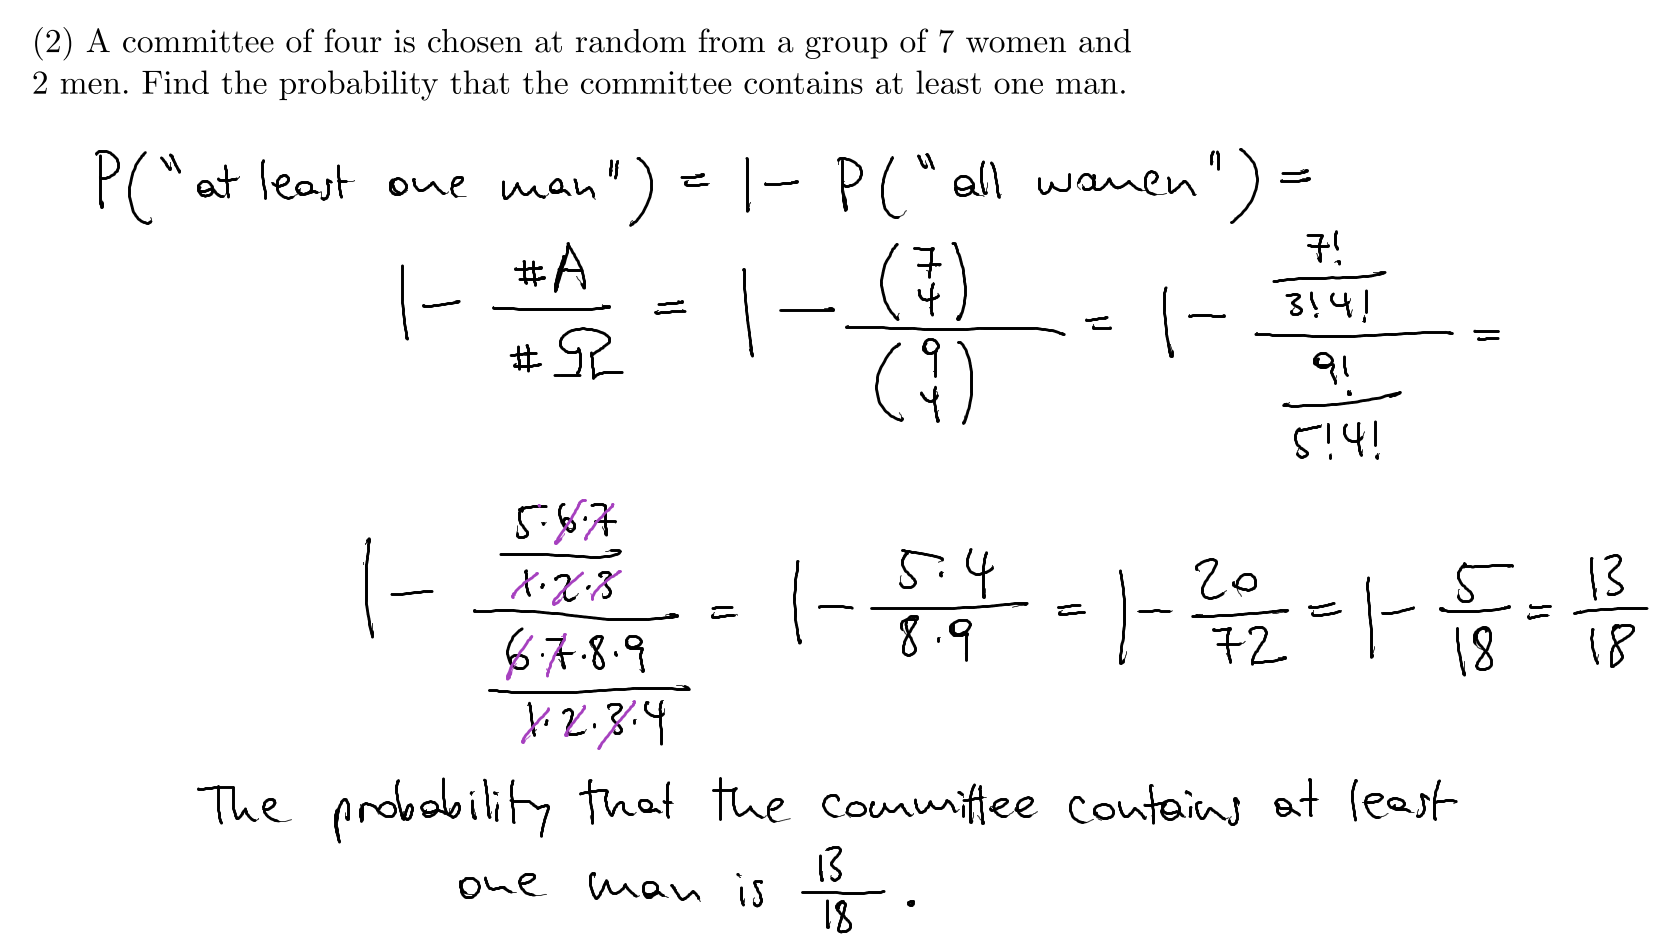 (2) A committee of four is chosen at random from a group of 7 women and
2 men. Find the probability that the committee contains at least one man.
P("at least one man") = 1 - P("all women") =
1 - #A / #Ω = 1 - (7 4) / (9 4) = 1 - (7! / 3!4!) / (9! / 5!4!) =
1 - (5·6·7 / 1·2·3) / (6·7·8·9 / 1·2·3·4) = 1 - 5·4 / 8·9 = 1 - 20 / 72 = 1 - 5 / 18 = 13 / 18
The probability that the committee contains at least
one man is 13 / 18 .